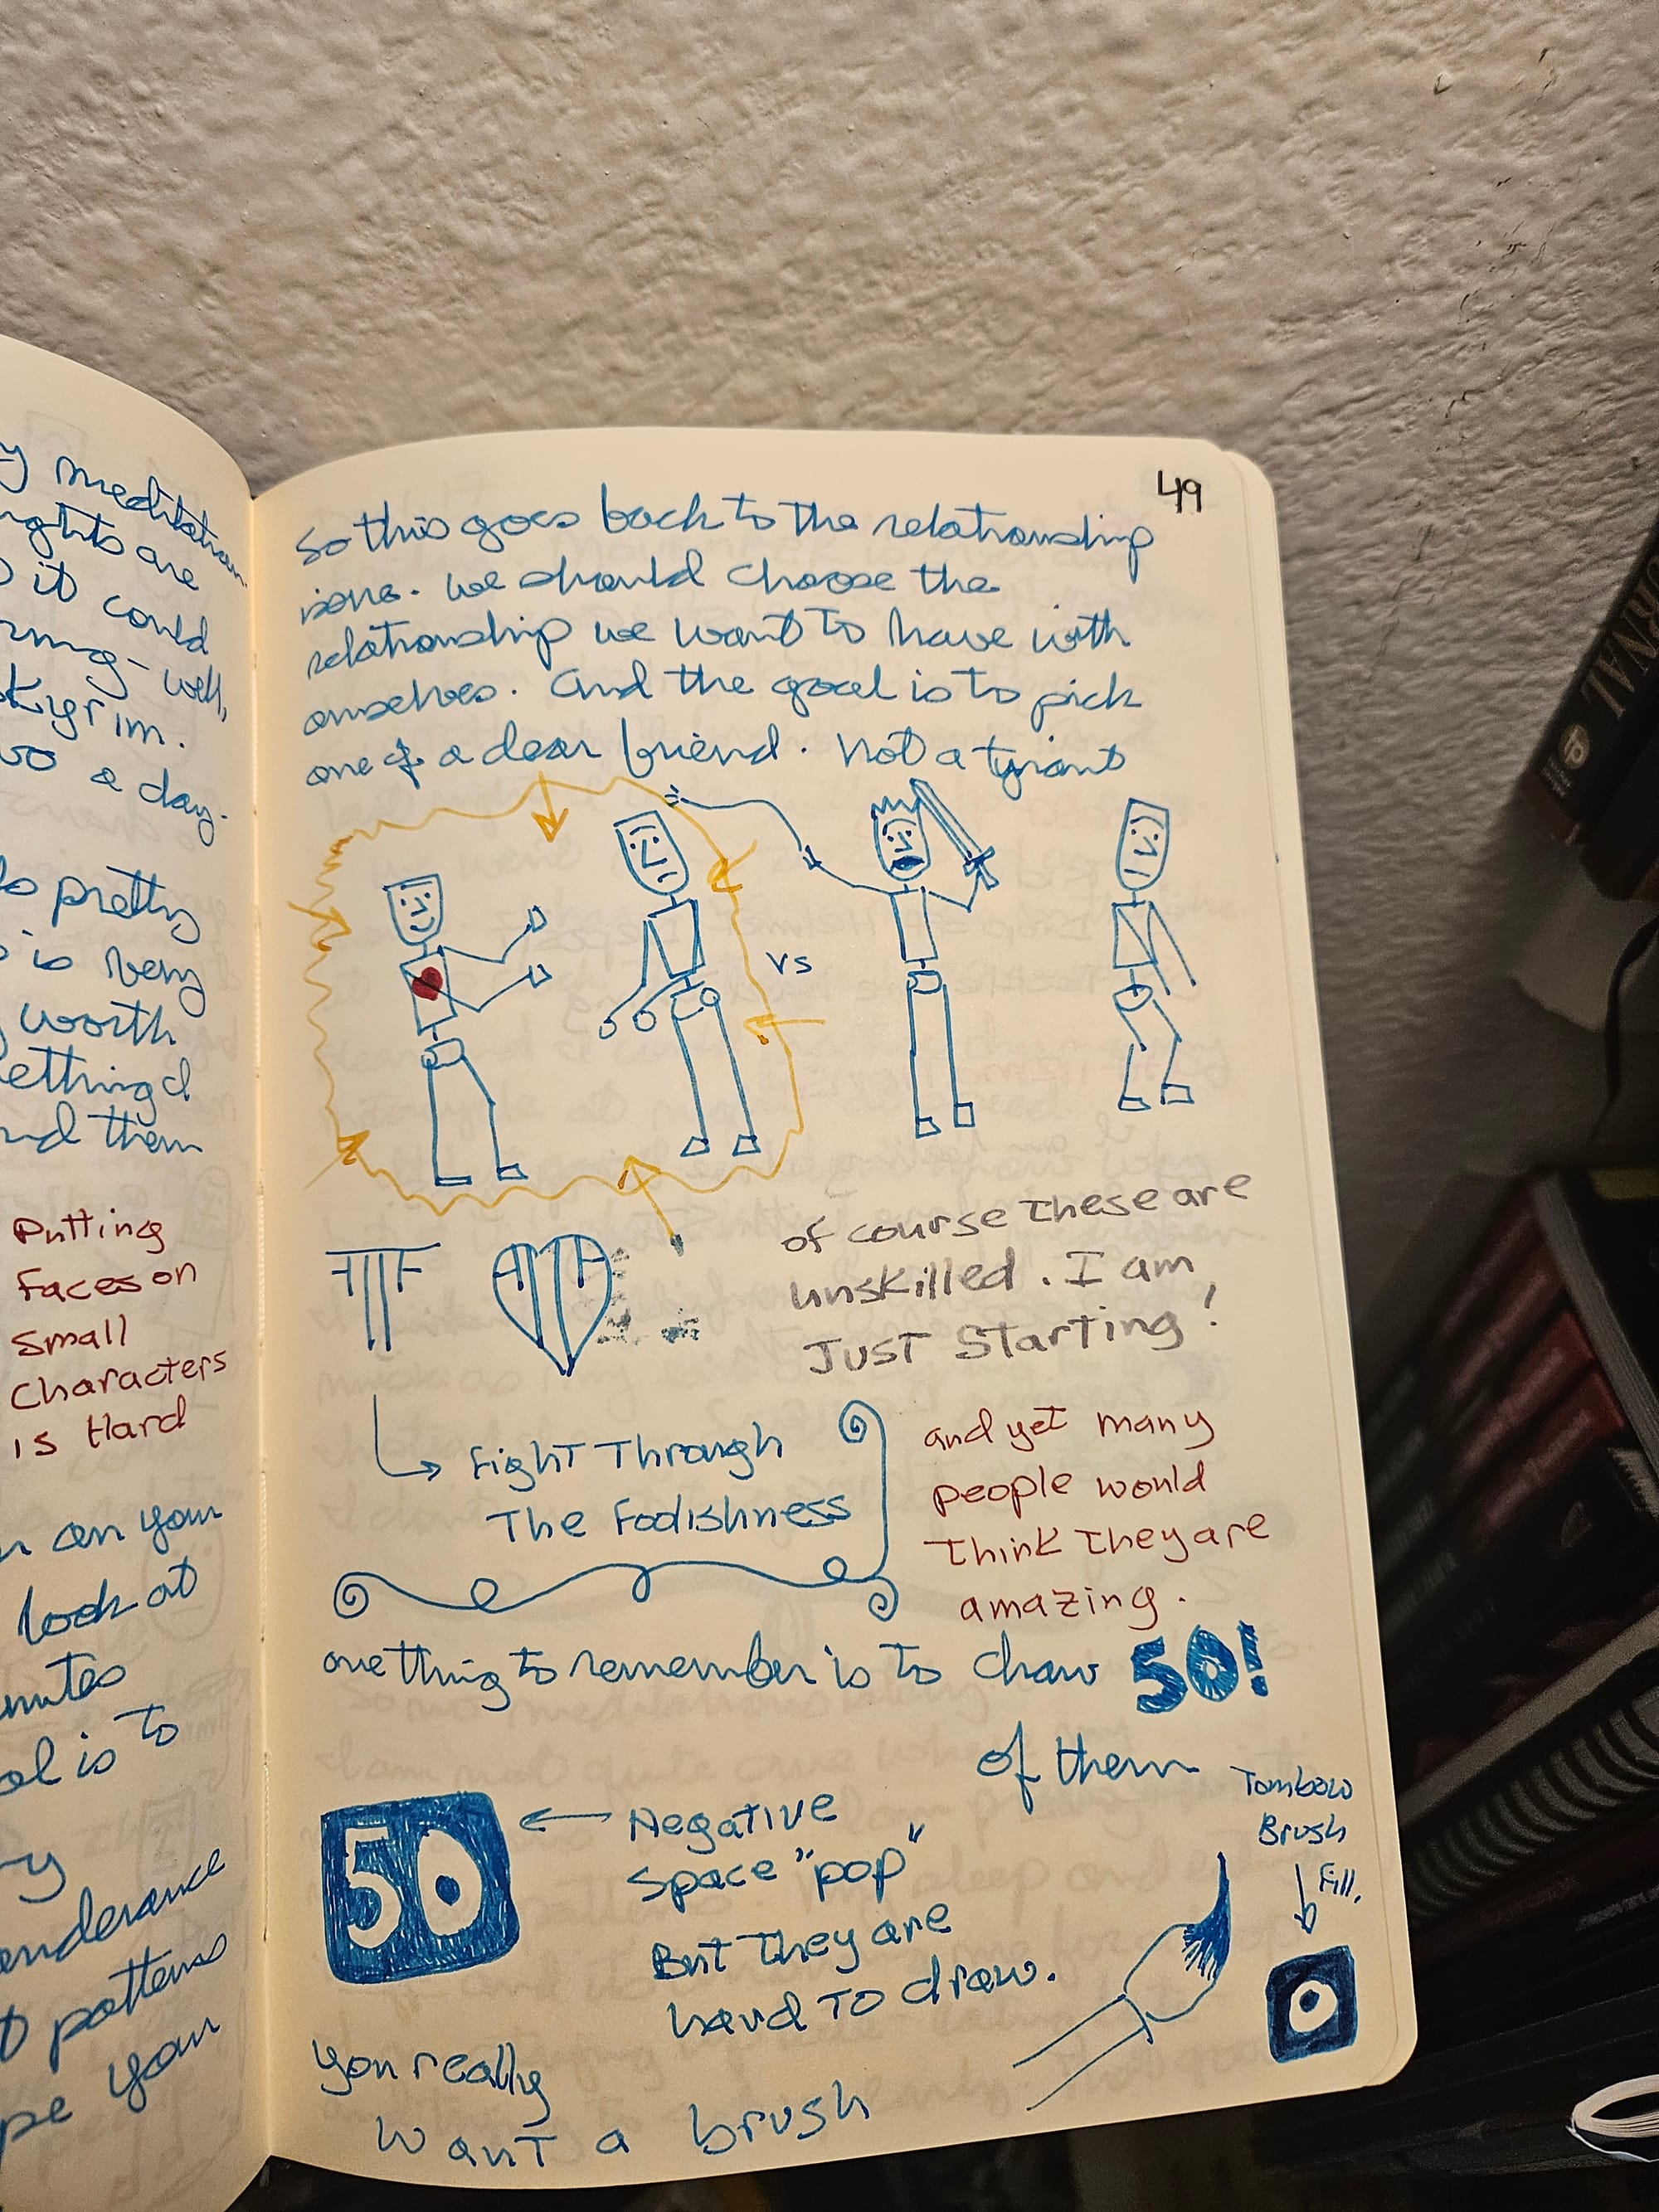 y meditation
ghts are
it could
ming- well,
Skyrim.
two a day.
pretty
is very
worth
ething I
and them
Putting
Faces on
Small
Characters
is Hard
on your
look at
minutes
is to
patterns
your
49
So this goes back to the relationship
we should choose the
relationship we want to have with
ourselves. And the goal is to pick
one of a dear friend. Not a tyrant
vs
of course These are
unskilled. I am
Just Starting!
FTTF
Fight Through
The Foolishness
and yet many
people would
Think They are
amazing.
one thing to remember is to draw 50!
of them
50
Negative
Space "pop"
But They are
hard To draw.
Tombow
Brush
Fill,
you really
want a brush